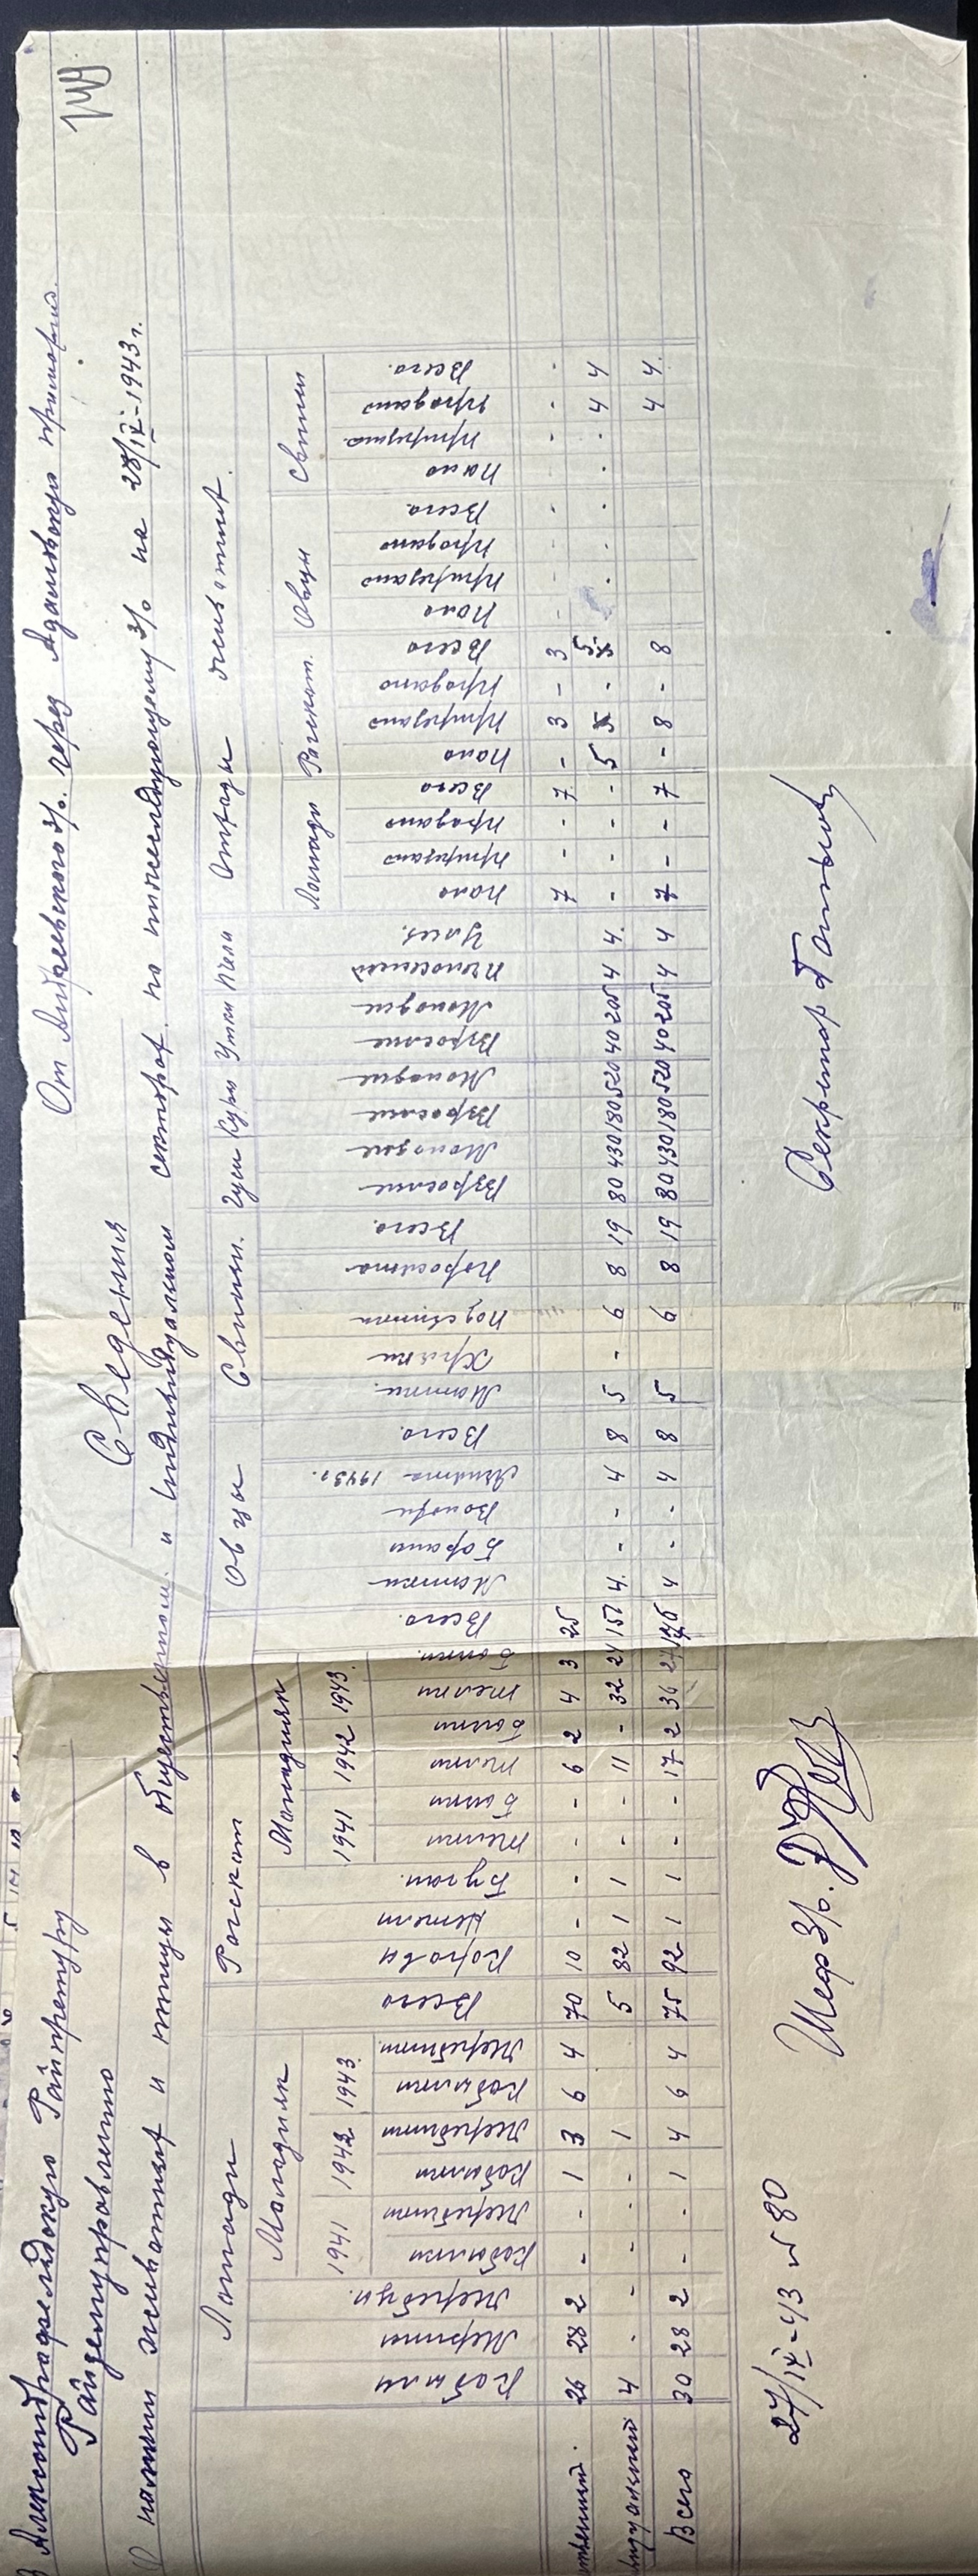 149
В Александрфельдскую Райпретуру
Райземуправлению
От Андреевского з/о. через Адамовскую примарию.
Сведения
О наличии животных и птицы в общественном. и индивидуальном секторах. по нижеследующему з/о на 28/IV-1943 г.
Лошади Рогскот Овцы Свиньи. Гуси Куры Утки Пчели Отходы животных.
Молодняк Молодняк Лошади Рогскот. Овцы Свиньи
1941 1942 1943. 1941 1942 1943.
Кобылы Мерины Жеребцы. Кобылки Жеребчики Кобылки Жеребчики Кобылки Жеребчики. Всего Коровы Нетели Бугаи. Телки Бычки Телки Бычки Телки Бычки. Всего. Матки Барани Волохи Ягнята 1943 г. Всего. Матки. Хряки Подсвинки Поросята Всего. Взрослые Молодые Взрослые Молодые Взрослые Молодые Пчелосемей Ульев. Пало Прирезано Продано Всего Пало Прирезано Продано Всего Пало Прирезано Продано Всего. Пало Прирезано. Продано Всего.
ственный. 26 28 2 - - 1 3 6 4 70 10 - - - - 6 2 4 3 25 7 - - 7 - 3 - 3 - - - - - - -
видуальный 4 - - - - - 1 5 82 1 1 - - 11 - 32 24 151 4. - - 4 8 5 - 6 8 19 80 430 180 520 40 205 4 4. - - - - 5 - 4 4
Всего 30 28 2 - - 1 4 6 4 75 92 1 1 - - 17 2 36 27 176 4 - - 4 8 5 6 8 19 80 430 180 520 40 205 4 4 7 - - 7 - 8 - 8 4 4.
27/IV-43 № 80
Шеф з/о.
Секретар